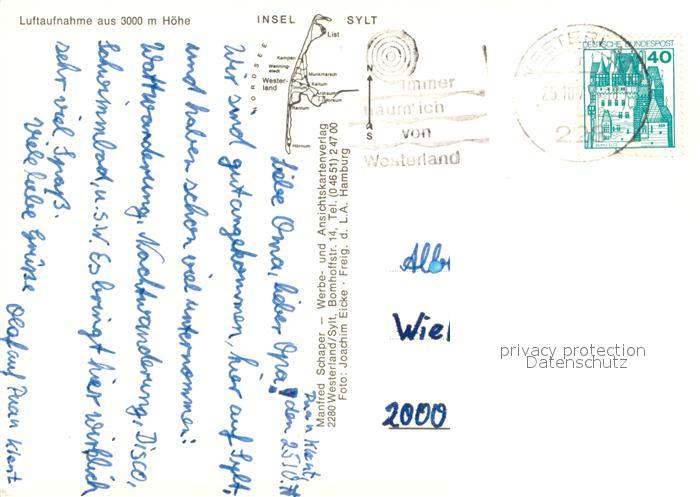 Luftaufnahme aus 3000 m Höhe
INSEL SYLT
List
Kampen
Wenning-
stedt
Wester-
land
Munkmarsch
Keitum
Archsum
Morsum
Rantum
Hörnum
NORDSEE
N
S
Immer
träum' ich
von
Westerland
WESTERLAND
25.10
DEUTSCHE BUNDESPOST
40
BURG ELTZ
Manfred Schaper — Werbe- und Ansichtskartenverlag
2280 Westerland/Sylt, Bomhoffstr. 14, Tel. (0 46 51) 2 47 00
Foto: Joachim Eicke · Freig. d. L.A. Hamburg
den 25.10.
Liebe Oma, lieber Opa!
Wir sind gut angekommen, hier auf Sylt.
und haben schon viel unternommen:
Wattwanderung, Nachtwanderung, Disco,
Schwimmbad, u.s.w. Es bringt hier wirklich
sehr viel Spaß.
Viele liebe Grüße
Olaf auf Puan Klent
Puan Klent,
Alb
Wie
2000
privacy protection
Datenschutz